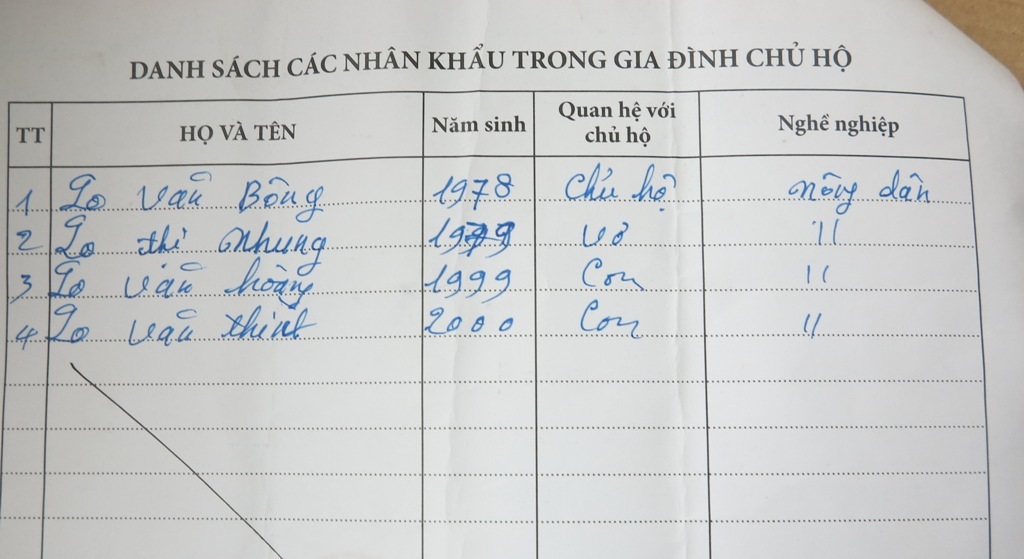 DANH SÁCH CÁC NHÂN KHẨU TRONG GIA ĐÌNH CHỦ HỘ
TT HỌ VÀ TÊN Năm sinh Quan hệ với chủ hộ Nghề nghiệp
1 Lo Văn Bông 1978 Chủ hộ nông dân
2 Lo thị Nhung 1979 Vợ 11
3 Lo Văn hoàng 1999 Con 11
4 Lo Văn 2000 Con 11